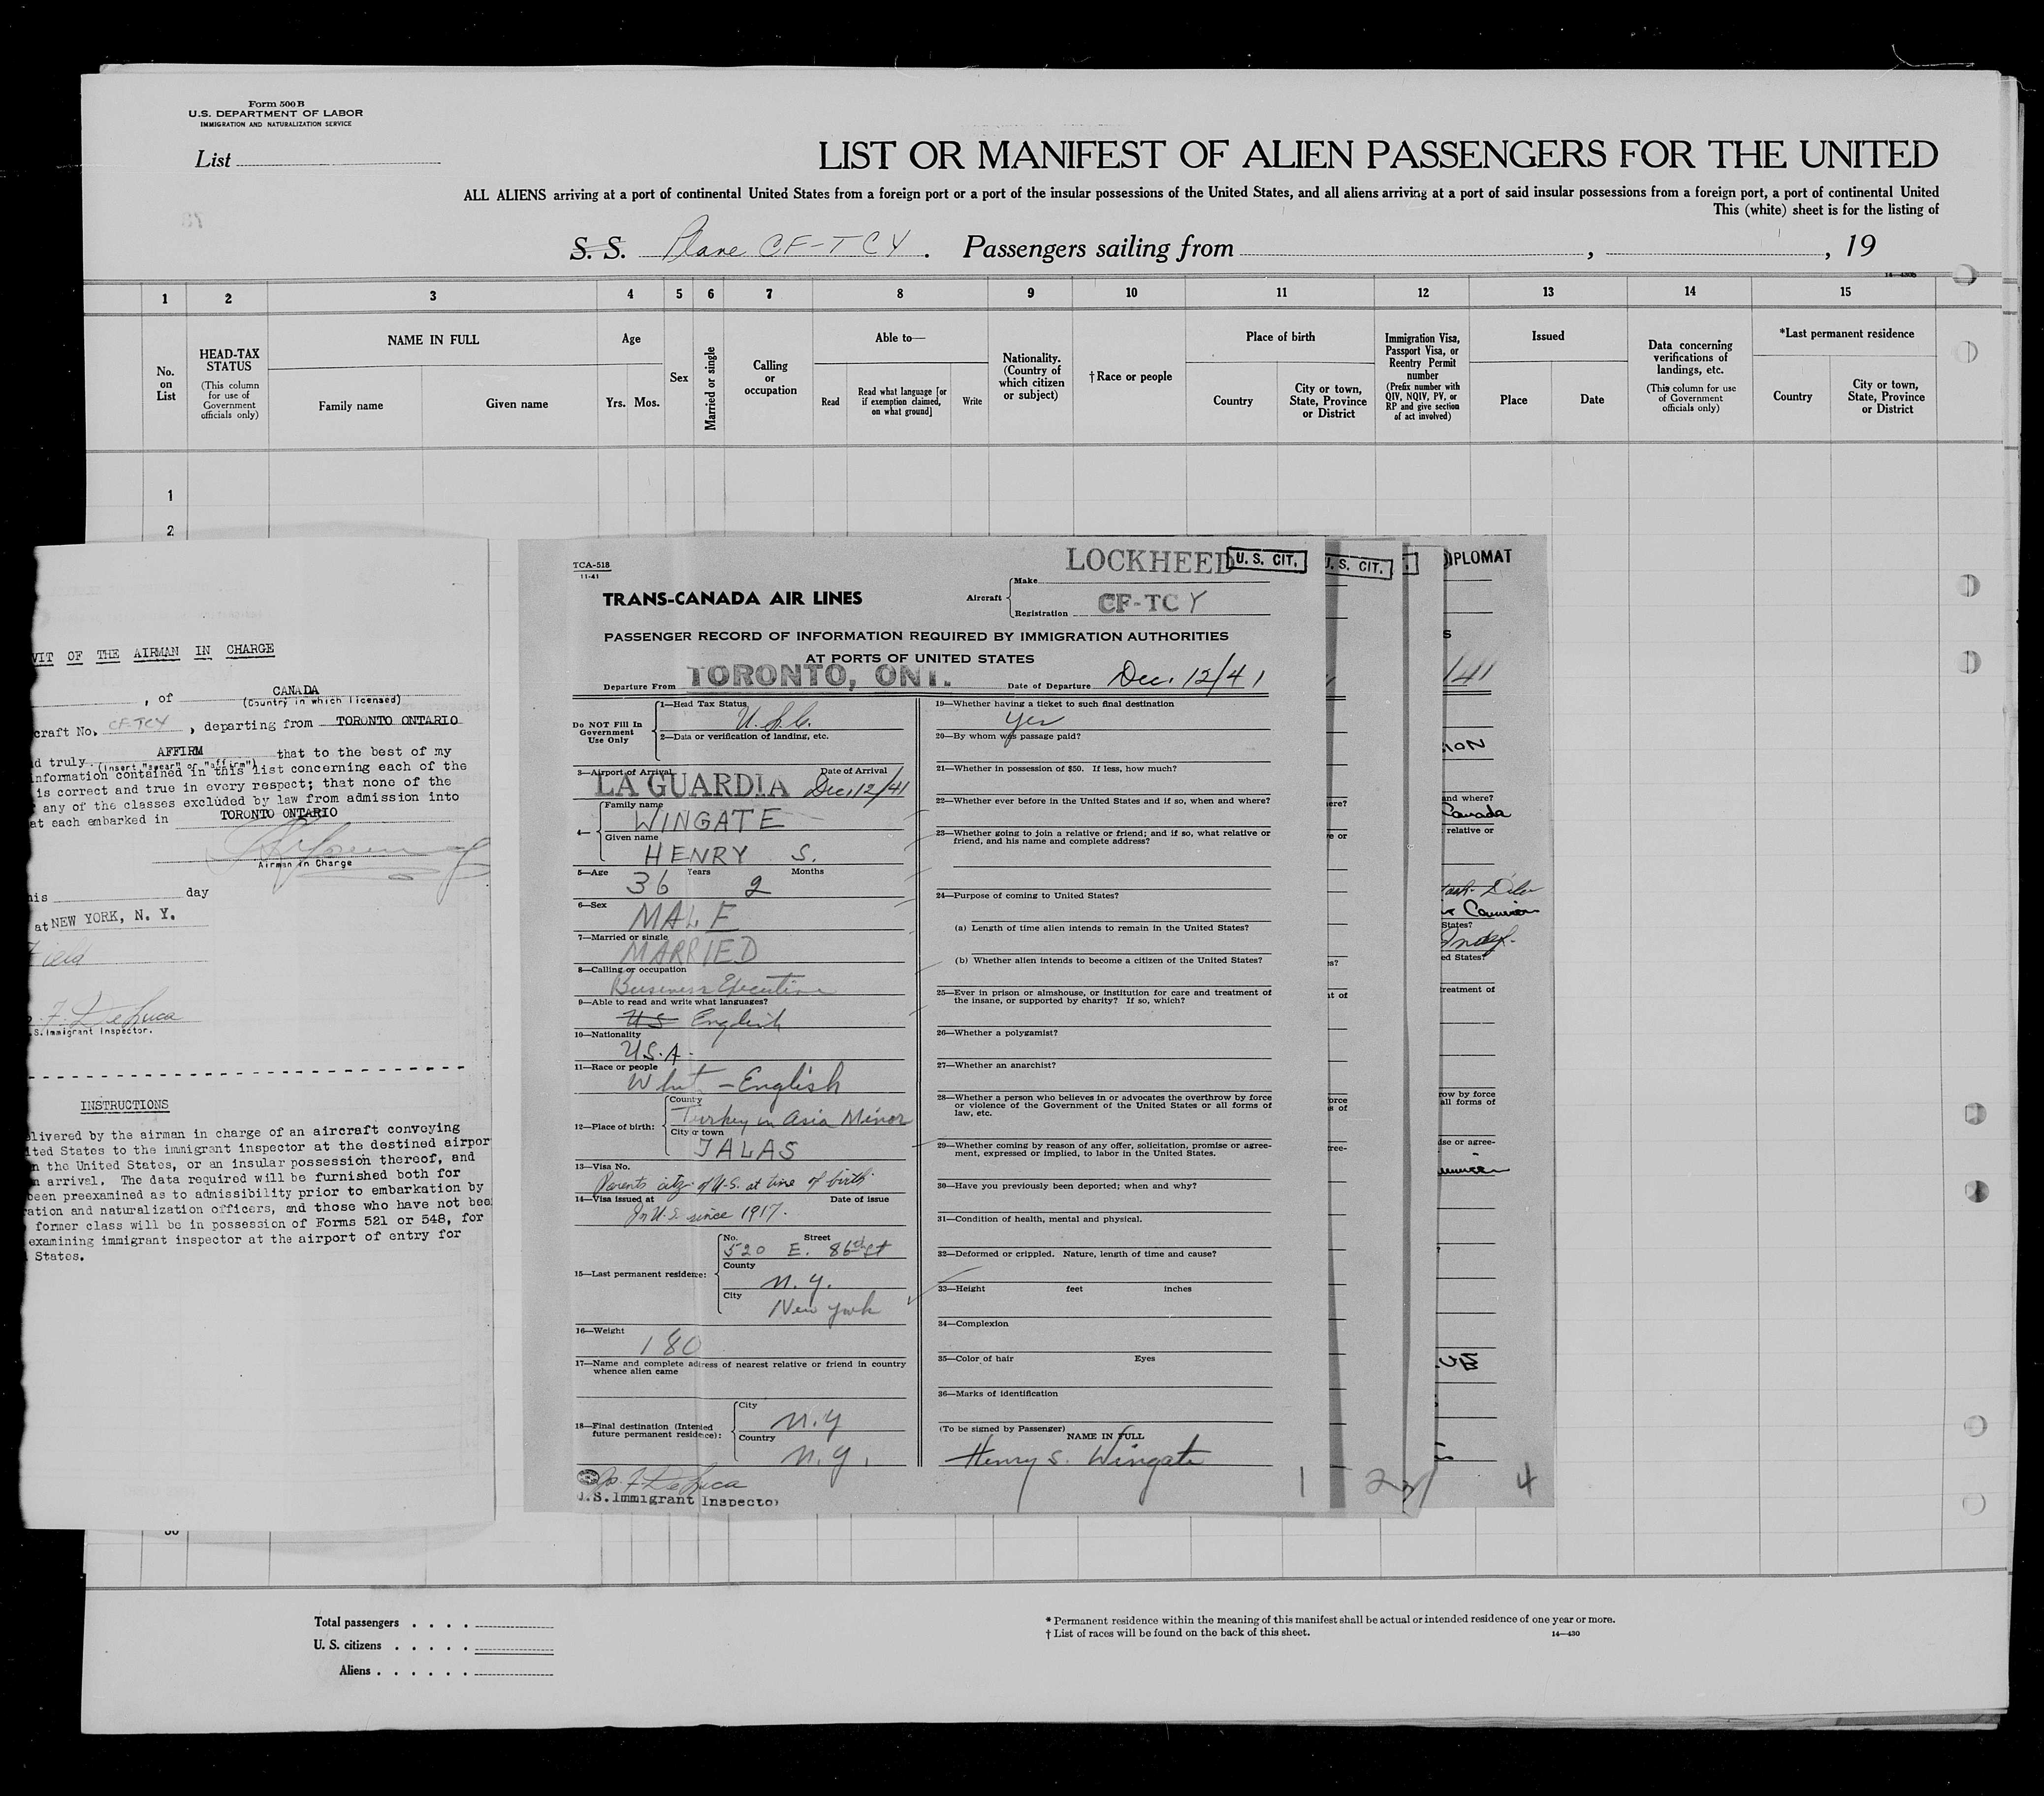 Form 500B
U.S. DEPARTMENT OF LABOR
IMMIGRATION AND NATURALIZATION SERVICE
List
LIST OR MANIFEST OF ALIEN PASSENGERS FOR THE UNITED
ALL ALIENS arriving at a port of continental United States from a foreign port or a port of the insular possessions of the United States, and all aliens arriving at a port of said insular possessions from a foreign port, a port of continental United
This (white) sheet is for the listing of
S. S. Plane CF-TCY. Passengers sailing from , , 19
14—430B
1 2 3 4 5 6 7 8 9 10 11 12 13 14 15
No. on List
HEAD-TAX STATUS
(This column for use of Government officials only)
NAME IN FULL
Family name
Given name
Age
Yrs. Mos.
Sex
Married or single
Calling or occupation
Able to—
Read
Read what language [or if exemption claimed, on what ground]
Write
Nationality. (Country of which citizen or subject)
† Race or people
Place of birth
Country
City or town, State, Province or District
Immigration Visa, Passport Visa, or Reentry Permit number
(Prefix number with QIV, NQIV, PV, or RP and give section of act involved)
Issued
Place
Date
Data concerning verifications of landings, etc.
(This column for use of Government officials only)
*Last permanent residence
Country
City or town, State, Province or District
1
2
VIT OF THE AIRMAN IN CHARGE
, of CANADA
(Country in which licensed)
craft No. CF-TCY , departing from TORONTO ONTARIO
d truly AFFIRM that to the best of my
(insert "swear" or "affirm")
information contained in this list concerning each of the
is correct and true in every respect; that none of the
any of the classes excluded by law from admission into
at each embarked in TORONTO ONTARIO
Airman in Charge
his day
at NEW YORK, N. Y.
Field
F. DeLuca
.S. Immigrant Inspector.
INSTRUCTIONS
livered by the airman in charge of an aircraft convoying
ited States to the immigrant inspector at the destined airpor
n the United States, or an insular possession thereof, and
n arrival. The data required will be furnished both for
been preexamined as to admissibility prior to embarkation by
ration and naturalization officers, and those who have not bee
former class will be in possession of Forms 521 or 548, for
examining immigrant inspector at the airport of entry for
States.
TCA-518
11-41
LOCKHEED
U. S. CIT.
TRANS-CANADA AIR LINES
Aircraft
Make
Registration CF-TCY
PASSENGER RECORD OF INFORMATION REQUIRED BY IMMIGRATION AUTHORITIES
AT PORTS OF UNITED STATES
Departure From TORONTO, ONT. Date of Departure Dec. 12/41
Do NOT Fill In
Government
Use Only
1—Head Tax Status
U.S.C.
2—Data or verification of landing, etc.
3—Airport of Arrival Date of Arrival
LA GUARDIA Dec. 12/41
4—
Family name
WINGATE
Given name
HENRY S.
5—Age Years Months
36 2
6—Sex
MALE
7—Married or single
MARRIED
8—Calling or occupation
Business Executive
9—Able to read and write what languages?
US English
10—Nationality
U.S.A.
11—Race or people
White – English
12—Place of birth:
County
Turkey in Asia Minor
City or town
TALAS
13—Visa No.
Parents citz. of U.S. at time of birth.
14—Visa issued at Date of issue
In U.S. since 1917.
15—Last permanent residence:
No. Street
520 E. 86th St
County
N.Y.
City
New York
16—Weight
180
17—Name and complete address of nearest relative or friend in country
whence alien came
18—Final destination (Intended
future permanent residence):
City
N.Y
Country
N.Y.
Jo. F. DeLuca
U.S. Immigrant Inspector
19—Whether having a ticket to such final destination
Yes
20—By whom was passage paid?
21—Whether in possession of $50. If less, how much?
22—Whether ever before in the United States and if so, when and where?
23—Whether going to join a relative or friend; and if so, what relative or
friend, and his name and complete address?
24—Purpose of coming to United States?
(a) Length of time alien intends to remain in the United States?
(b) Whether alien intends to become a citizen of the United States?
25—Ever in prison or almshouse, or institution for care and treatment of
the insane, or supported by charity? If so, which?
26—Whether a polygamist?
27—Whether an anarchist?
28—Whether a person who believes in or advocates the overthrow by force
or violence of the Government of the United States or all forms of
law, etc.
29—Whether coming by reason of any offer, solicitation, promise or agree-
ment, expressed or implied, to labor in the United States.
30—Have you previously been deported; when and why?
31—Condition of health, mental and physical.
32—Deformed or crippled. Nature, length of time and cause?
33—Height feet inches
34—Complexion
35—Color of hair Eyes
36—Marks of identification
(To be signed by Passenger)
NAME IN FULL
Henry S. Wingate
1
U. S. CIT.
ere?
e or
s?
t of
orce
s of
ree-
2
3
DIPLOMAT
S
/41
ION
and where?
Canada
relative or
States?
Indef.
ed States?
reatment of
row by force
all forms of
ise or agree-
?
4
30
Total passengers
U. S. citizens
Aliens
* Permanent residence within the meaning of this manifest shall be actual or intended residence of one year or more.
† List of races will be found on the back of this sheet.
14—430